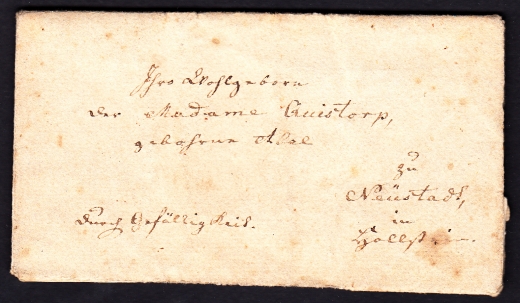 Ihro Wohlgeborn
der Madame Quistorp,
gebohrne Abel
zu
Neüstadt,
in
Hollstein.
durch Gefälligkeit.